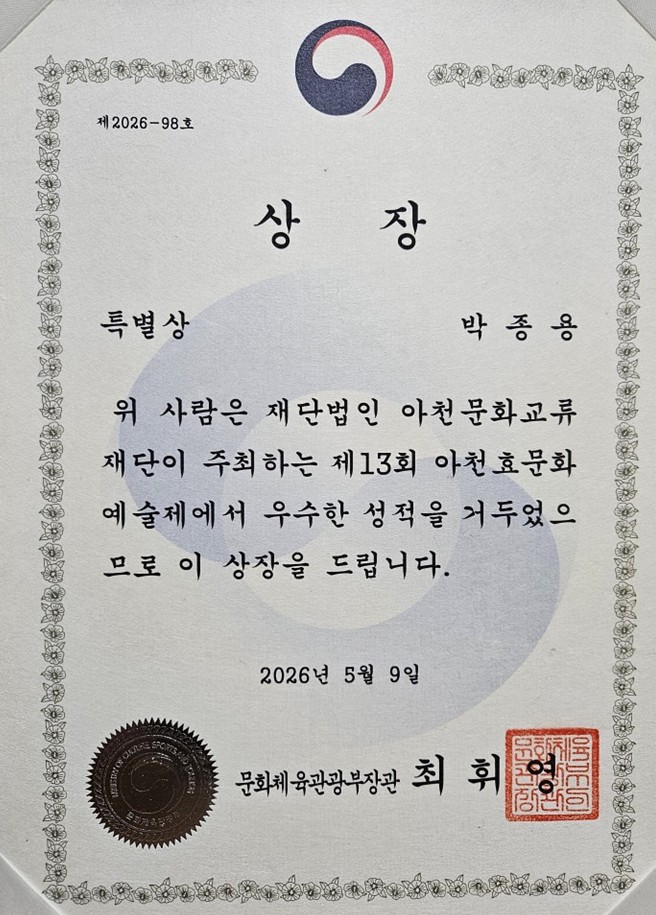 제2026-98호
상 장
특별상 박종용
위 사람은 재단법인 아천문화교류
재단이 주최하는 제13회 아천효문화
예술제에서 우수한 성적을 거두었으
므로 이 상장을 드립니다.
2026년 5월 9일
문화체육관광부장관 최휘영
MINISTRY OF CULTURE, SPORTS AND TOURISM
문화체육관광부